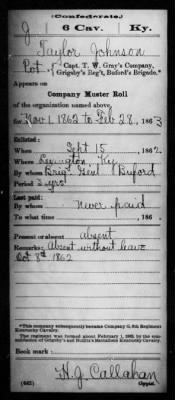 (Confederate.)
J 6 Cav. Ky.
Taylor Johnson
Pvt., Capt. T. W. Gray's Company,
Grigsby's Reg't, Buford's Brigade.*
Appears on
Company Muster Roll
of the organization named above,
for Nov 1, 1862 to Feb 28, 1863
Enlisted:
When Sept 15, 1862.
Where Lexington, Ky
By whom Brig. Genl Buford
Period 3 yrs
Last paid:
By whom never paid
To what time , 186 .
Present or absent absent
Remarks: Absent without leave
Oct 8th 1862
*This company subsequently became Company G, 6th Regiment
Kentucky Cavalry.
The regiment was formed about February 1, 1863, by the con-
solidation of Grigsby's and Battalions Kentucky Cavalry.
Book mark:
H. J. Callahan
(642) Copyist.